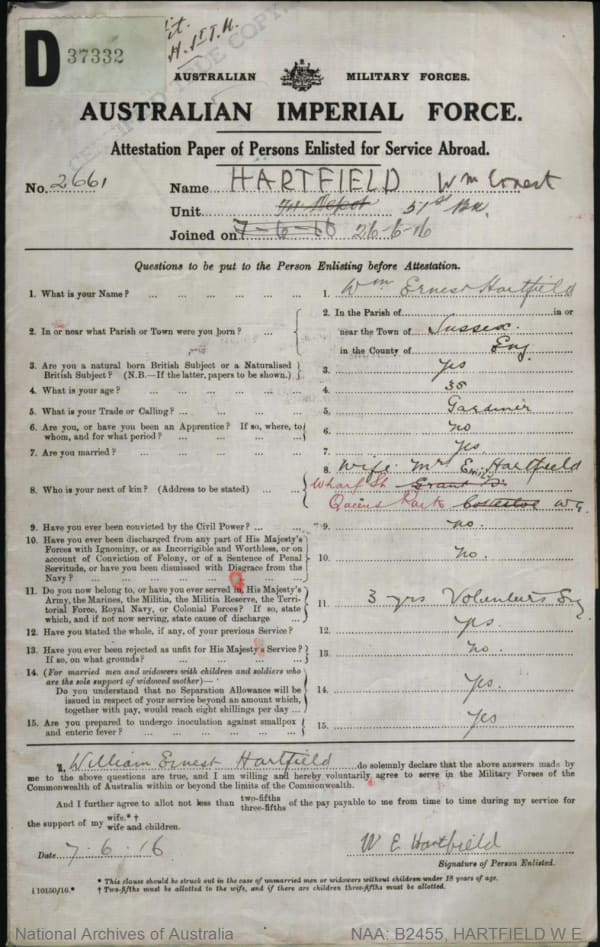 D 37332
AUSTRALIAN MILITARY FORCES.
AUSTRALIAN IMPERIAL FORCE.
Attestation Paper of Persons Enlisted for Service Abroad.
No. 2661 Name HARTFIELD Wm Ernest
Unit 51st Bn.
Joined on 7-6-16 26-6-16
Questions to be put to the Person Enlisting before Attestation.
1. What is your Name? ... 1. Wm Ernest Hartfield
2. In or near what Parish or Town were you born? ... 2. In the Parish of in or
near the Town of Sussex.
in the County of Eng
3. Are you a natural born British Subject or a Naturalised
British Subject? (N.B.—If the latter, papers to be shown.) 3. yes
4. What is your age? ... 4. 35
5. What is your Trade or Calling? ... 5. Gardiner
6. Are you, or have you been an Apprentice? If so, where, to
whom, and for what period? ... 6. no
7. Are you married? ... 7. yes
8. Who is your next of kin? (Address to be stated) ... 8. Wife Mrs Hartfield
Wharf St Grant St
Queens Park W.A.
9. Have you ever been convicted by the Civil Power? ... 9. no.
10. Have you ever been discharged from any part of His Majesty's
Forces with Ignominy, or as Incorrigible and Worthless, or on
account of Conviction of Felony, or of a Sentence of Penal
Servitude, or have you been dismissed with Disgrace from the
Navy? ... 10. no.
11. Do you now belong to, or have you ever served in, His Majesty's
Army, the Marines, the Militia, the Militia Reserve, the Terri-
torial Force, Royal Navy, or Colonial Forces? If so, state
which, and if not now serving, state cause of discharge ... 11. 3 yrs Volunteers Eng
12. Have you stated the whole, if any, of your previous Service? 12. yes.
13. Have you ever been rejected as unfit for His Majesty's Service?
If so, on what grounds? ... 13. no.
14. (For married men and widowers with children and soldiers who
are the sole support of widowed mother)—
Do you understand that no Separation Allowance will be
issued in respect of your service beyond an amount which,
together with pay, would reach eight shillings per day ... 14. yes.
15. Are you prepared to undergo inoculation against smallpox
and enteric fever? ... 15. yes
I, William Ernest Hartfield do solemnly declare that the above answers made by
me to the above questions are true, and I am willing and hereby voluntarily agree to serve in the Military Forces of the
Commonwealth of Australia within or beyond the limits of the Commonwealth.
And I further agree to allot not less than two-fifths three-fifths of the pay payable to me from time to time during my service for
the support of my wife.* † wife and children.
Date 7.6.16 W E Hartfield
Signature of Person Enlisted.
* This clause should be struck out in the case of unmarried men or widowers without children under 18 years of age.
† Two-fifths must be allotted to the wife, and if there are children three-fifths must be allotted.
i 10150/16.*
National Archives of Australia NAA: B2455, HARTFIELD W E